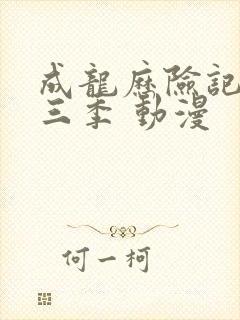 成龍歷險記
三季 動漫
何一柯